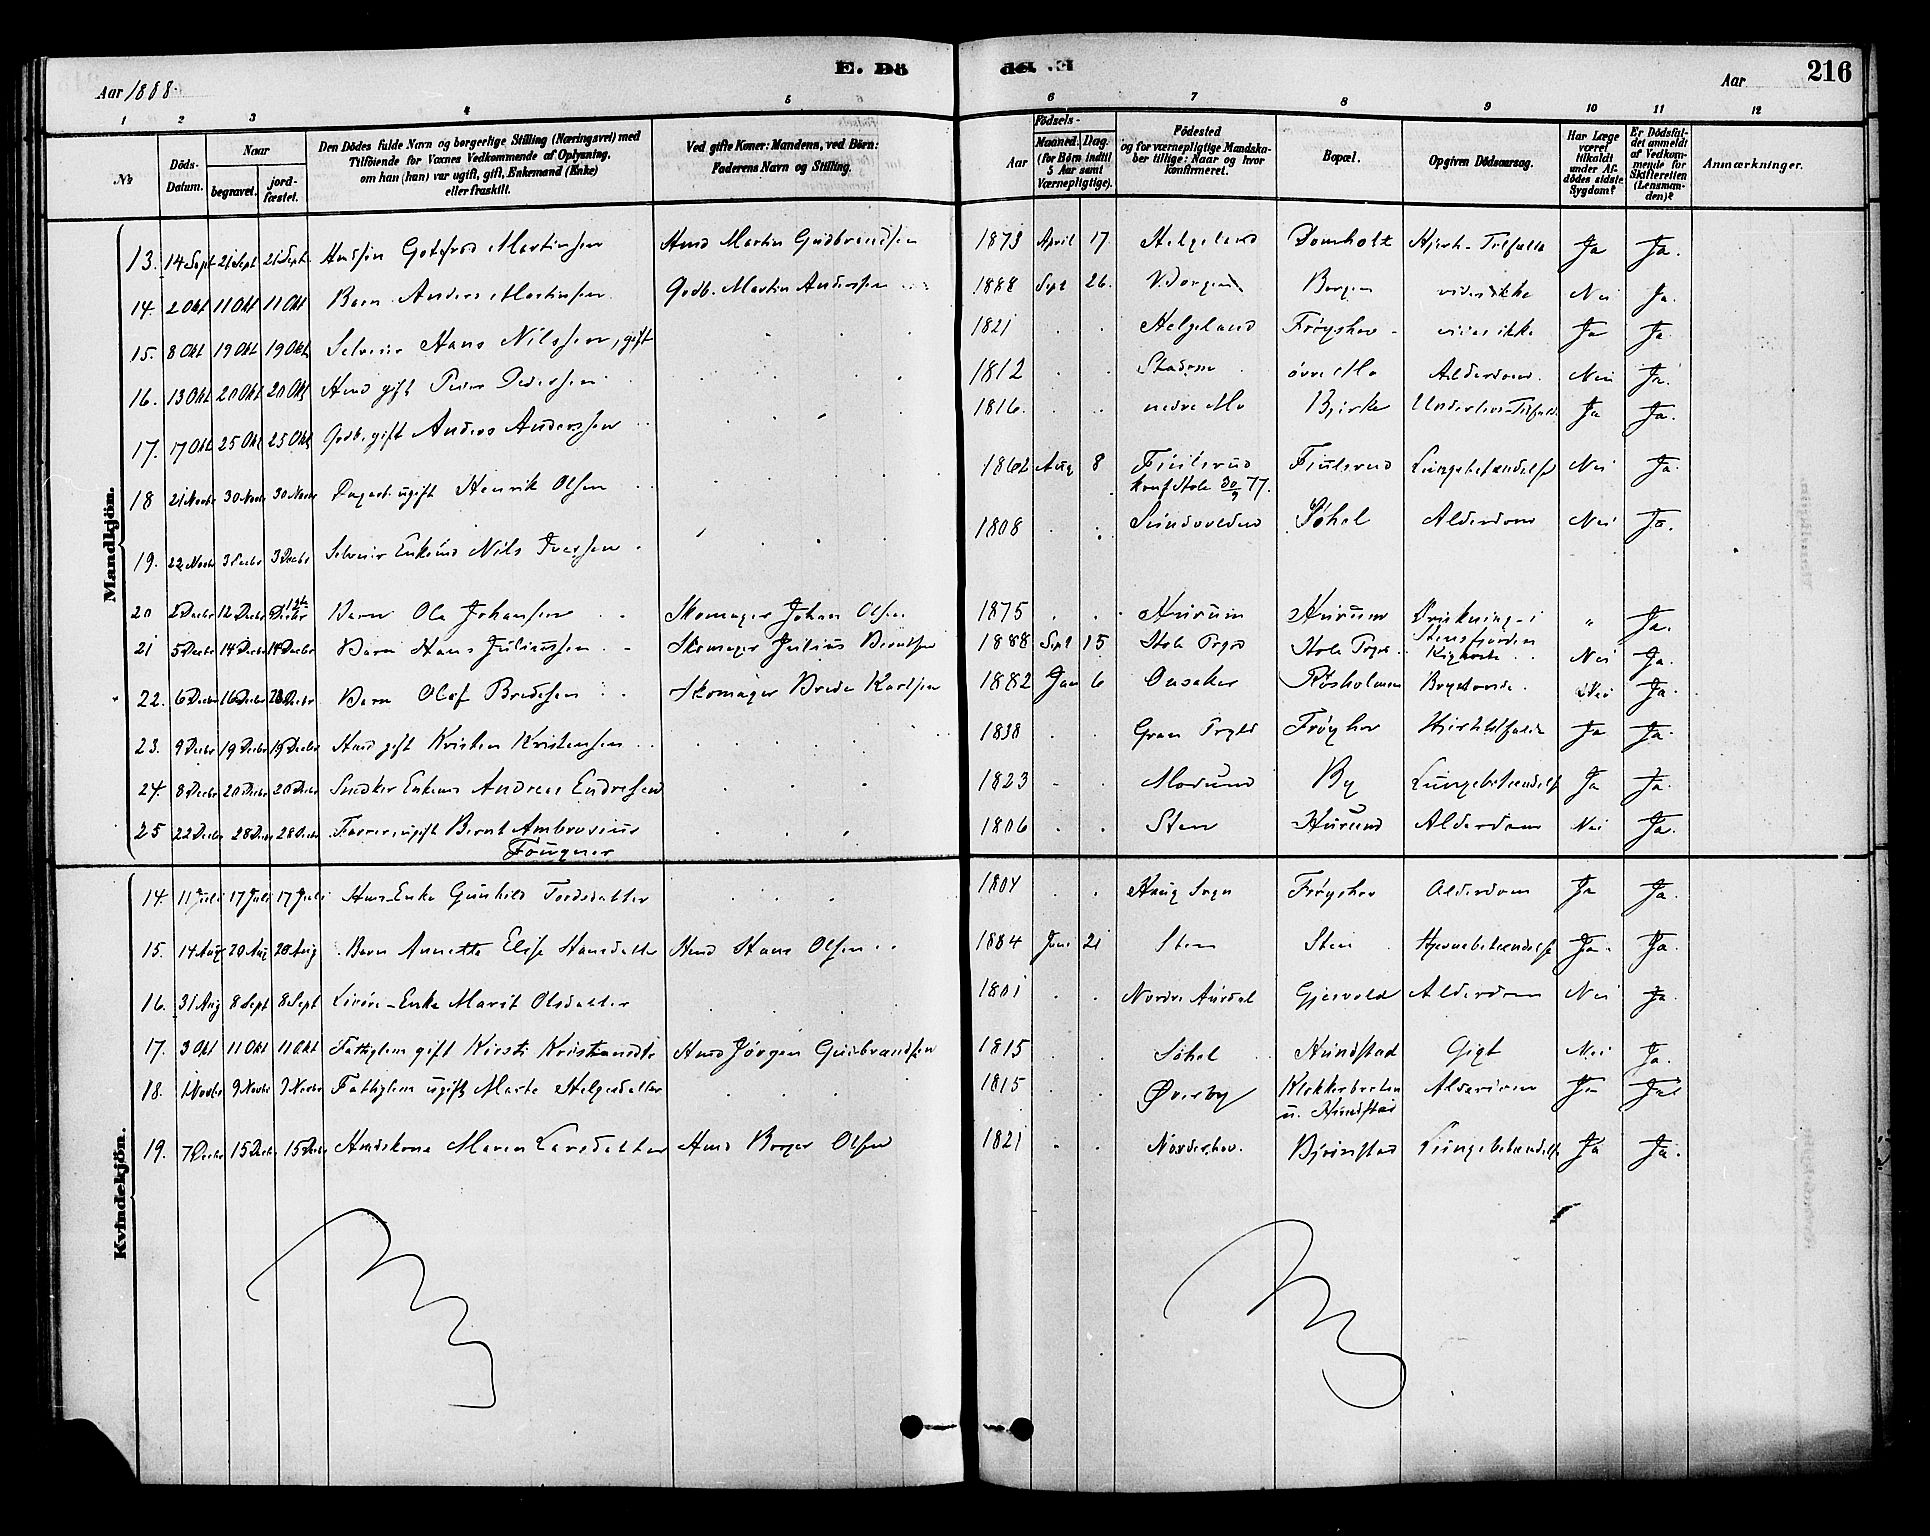 E. Dö
de. E.
216
Aar 1888.
Aar
1 2 3 4 5 6 7 8 9 10 11 12
№
Döds-Datum.
Naar
begravet.
jord-fæstet.
Den Dödes fulde Navn og borgerlige Stilling (Næringsvei) med
Tilföiende for Voxnes Vedkommende af Oplysning,
om han (hun) var ugift, gift, Enkemand (Enke)
eller fraskilt.
Ved gifte Koner: Mandens, ved Börn:
Faderens Navn og Stilling.
Födsels-
Aar
Maaned. Dag.
(for Börn indtil
5 Aar samt
Værnepligtige).
Födested
og for værnepligtige Mandska-
ber tillige: Naar og hvor
konfirmeret.
Bopæl.
Opgiven Dödsaarsag.
Har Læge
været
tilkaldt
under Af-
dödes sidste
Sygdom?
Er Dödsfal-
det anmeldt
af Vedkom-
mende for
Skifteretten
(Lensman-
den)?
Anmærkninger.
Mandkjön.
13. 14 Sept 21 Sept 21 Sept Gotfred Martinsen Martin Gudbrandsen 1873 April 17. Helgeland Domholt Ja Ja.
14. 2 Okt 11 Okt 11 Okt Barn Anders Martinsen Godb. Martin Anderssen 1888 Sept 26. Borgen vides ikke Nei Ja.
15. 8 Okt 19 Okt 19 Okt Selveier Hans Nilssen, gift 1821 Helgeland Frøyshov vides ikke Ja Ja.
16. 13 Okt 20 Okt 20 Okt gift Peder Pedersen 1812 øvre Mo Alderdom. Nei Ja.
17. 17 Okt 25 Okt 25 Okt Godb. gift Anders Anderssen 1816. nedre Mo Bjerke Ja Ja.
18 21 Novbr 30 Novbr 30 Novbr ugift Henrik Olsen 1862 Aug 8 Fiulsrud Fiulsrud Lungebetændelse Nei Ja.
konf Hole 30/9 77.
19. 22 Novbr 3 Decbr 3 Decbr Selveier Enkemd Nils Iversen 1808 Sundvolden Søhol Alderdom Nei Ja.
20 2 Decbr 12 Decbr 12te Decbr Barn Ole Johansen Skomager Johan Olsen 1875 Hurum Hurum Drukning i „ Ja.
Stensfjorden
21 5 Decbr 14 Decbr 14 Decbr Barn Hans Juliussen Skomager Julius Berntsen 1888 Sept 15 Hole Prgd Hole Prgd. Kighoste Nei Ja.
22. 6 Decbr 16 Decbr Decbr Barn Olof Bredesen Skomager Brede Karlsen 1882 Jan 6 Onsaker Røsholmen Nei Ja.
23. 9 Decbr 19 Decbr 19 Decbr gift Kristen Kristensen 1838 Gran Prgld Frøyshov Ja Ja.
24. 8 Decbr 20 Decbr 20 Decbr Snedker Enkemd Andreas Endresen 1823 Modum By Lungebetændelse Ja Ja.
25 22 Decbr 28 Decbr 28 Decbr ugift Bernt Ambrosius 1806 Sten Alderdom Nei Ja.
Fougner
Kvindekjön.
14. 11 Juli 17 Juli 17 Juli Enke Gunhild Tordsdatter 1804 Haug Sogn Frøyshov Alderdom Ja Ja.
15. 14 Aug 20 Aug 20 Aug Barn Annette Elise Hansdatter Hans Olsen 1884 Juni 21 Sten Sten Hjernebetændelse Ja. Ja.
16. 31 Aug 8 Sept 8 Sept Enke Marit Olsdatter 1801 Nordre Aurdal Gjesvold Alderdom Nei Ja.
17. 3 Okt 11 Okt 11 Okt Fattiglem gift Kirsti Jørgen Gudbrandsen 1815 Søhol Hundstad Gigt Nei Ja.
18. 1 Novbr 9 Novbr 9 Novbr Fattiglem ugift Marte Helgesdatter 1815 Øverby Klokkerbraten Alderdom Ja Ja
u. Hundstad
19. 7 Decbr 15 Decbr 15 Decbr Maren Larsdatter Borger Olsen 1821 Norderhov. Bjørnstad Lungebetændelse Ja Ja.